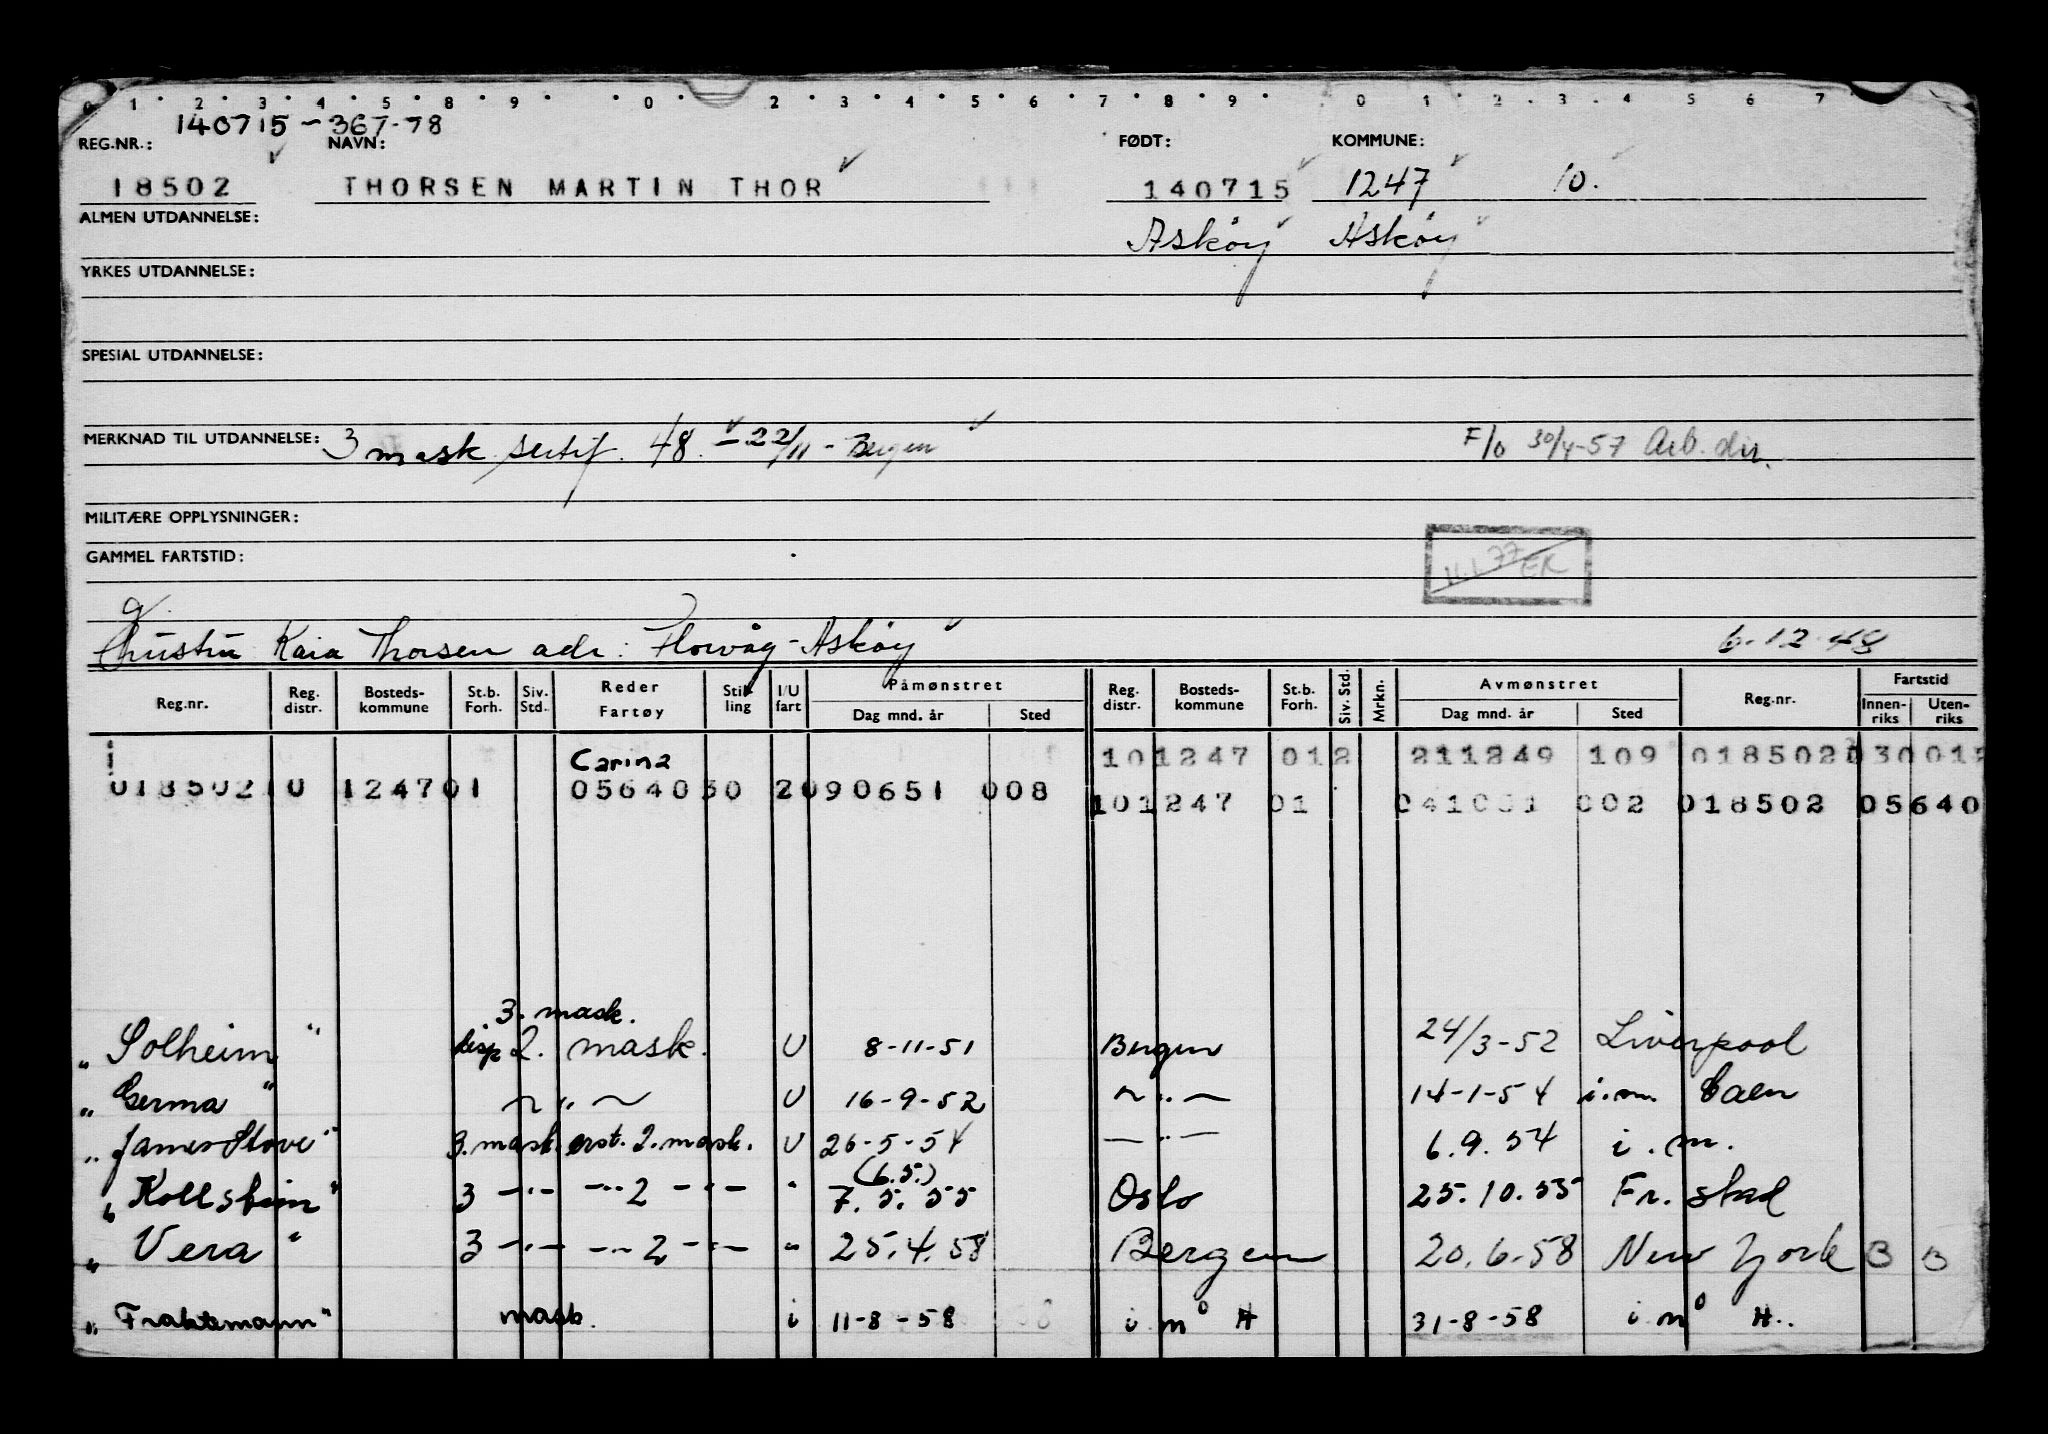 0 1 2 3 4 5 8 9 0 2 3 4 5 6 7 8 9 0 1 2 3 4 5 6 7
140715-367-78
REG.NR.: NAVN: FØDT: KOMMUNE:
18502 THORSEN MARTIN THOR 140715 1247 10.
ALMEN UTDANNELSE: Askøy Askøy
YRKES UTDANNELSE:
SPESIAL UTDANNELSE:
MERKNAD TIL UTDANNELSE: 3 mask sertif. 48. - 22/11 - Bergen F/o 30/4-57 Arb. dir.
MILITÆRE OPPLYSNINGER:
GAMMEL FARTSTID: 11.1.77 EK
g.
Kaia Thorsen adr: Florvåg - Askøy 6.12.48
Reg.nr. Reg. distr. Bosteds-kommune St.b. Forh. Siv. Std. Reder Fartøy Stilling I/U fart Påmønstret Dag mnd. år Sted Reg. distr. Bosteds-kommune St.b. Forh. Siv. Std. Mrkn. Avmønstret Dag mnd. år Sted Reg.nr. Fartstid Innen-riks Uten-riks
Carina 101247 012 211249 109 018502
018502 10 124701 0564030 2090651 008 101247 01 002 018502 05640
3. mask.
" Solheim " disp 2. mask. U 8-11-51 Bergen 24/3-52 Liverpool
" Germa " ~ " ~ U 16-9-52 ~ " — 14-1-54 i.m. Caen
" James Stove " 3. mask. erst. 2. mask. U 26-5-54 — " — 6.9.54 i.m.
(6.5.)
" Kollskim " 3 — " — — " 2 — " — " 7.5.55 Oslo 25.10.55 Fr. stad
" Vera " 3 — " — — " 2 — " — " 25.4.58 Bergen 20.6.58 New York B B
" Fraktemann " mask. i 11-8-58 i m° H 31-8-58 i m° H..